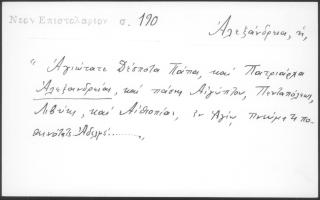 Νεον Επιστολαριον σ. 190
Ἀλεξάνδρεια, ἡ,
"Ἁγιώτατε Δέσποτα Πάπα, καὶ Πατριάρχα
Ἀλεξανδρείας, καὶ πάσης Αἰγύπτου, Πενταπόλεως,
Λιβύης, καὶ Αἰθιοπίας, ἐν Ἁγίῳ Πνεύματι πο-
θεινότατε Ἀδελφέ.......,,